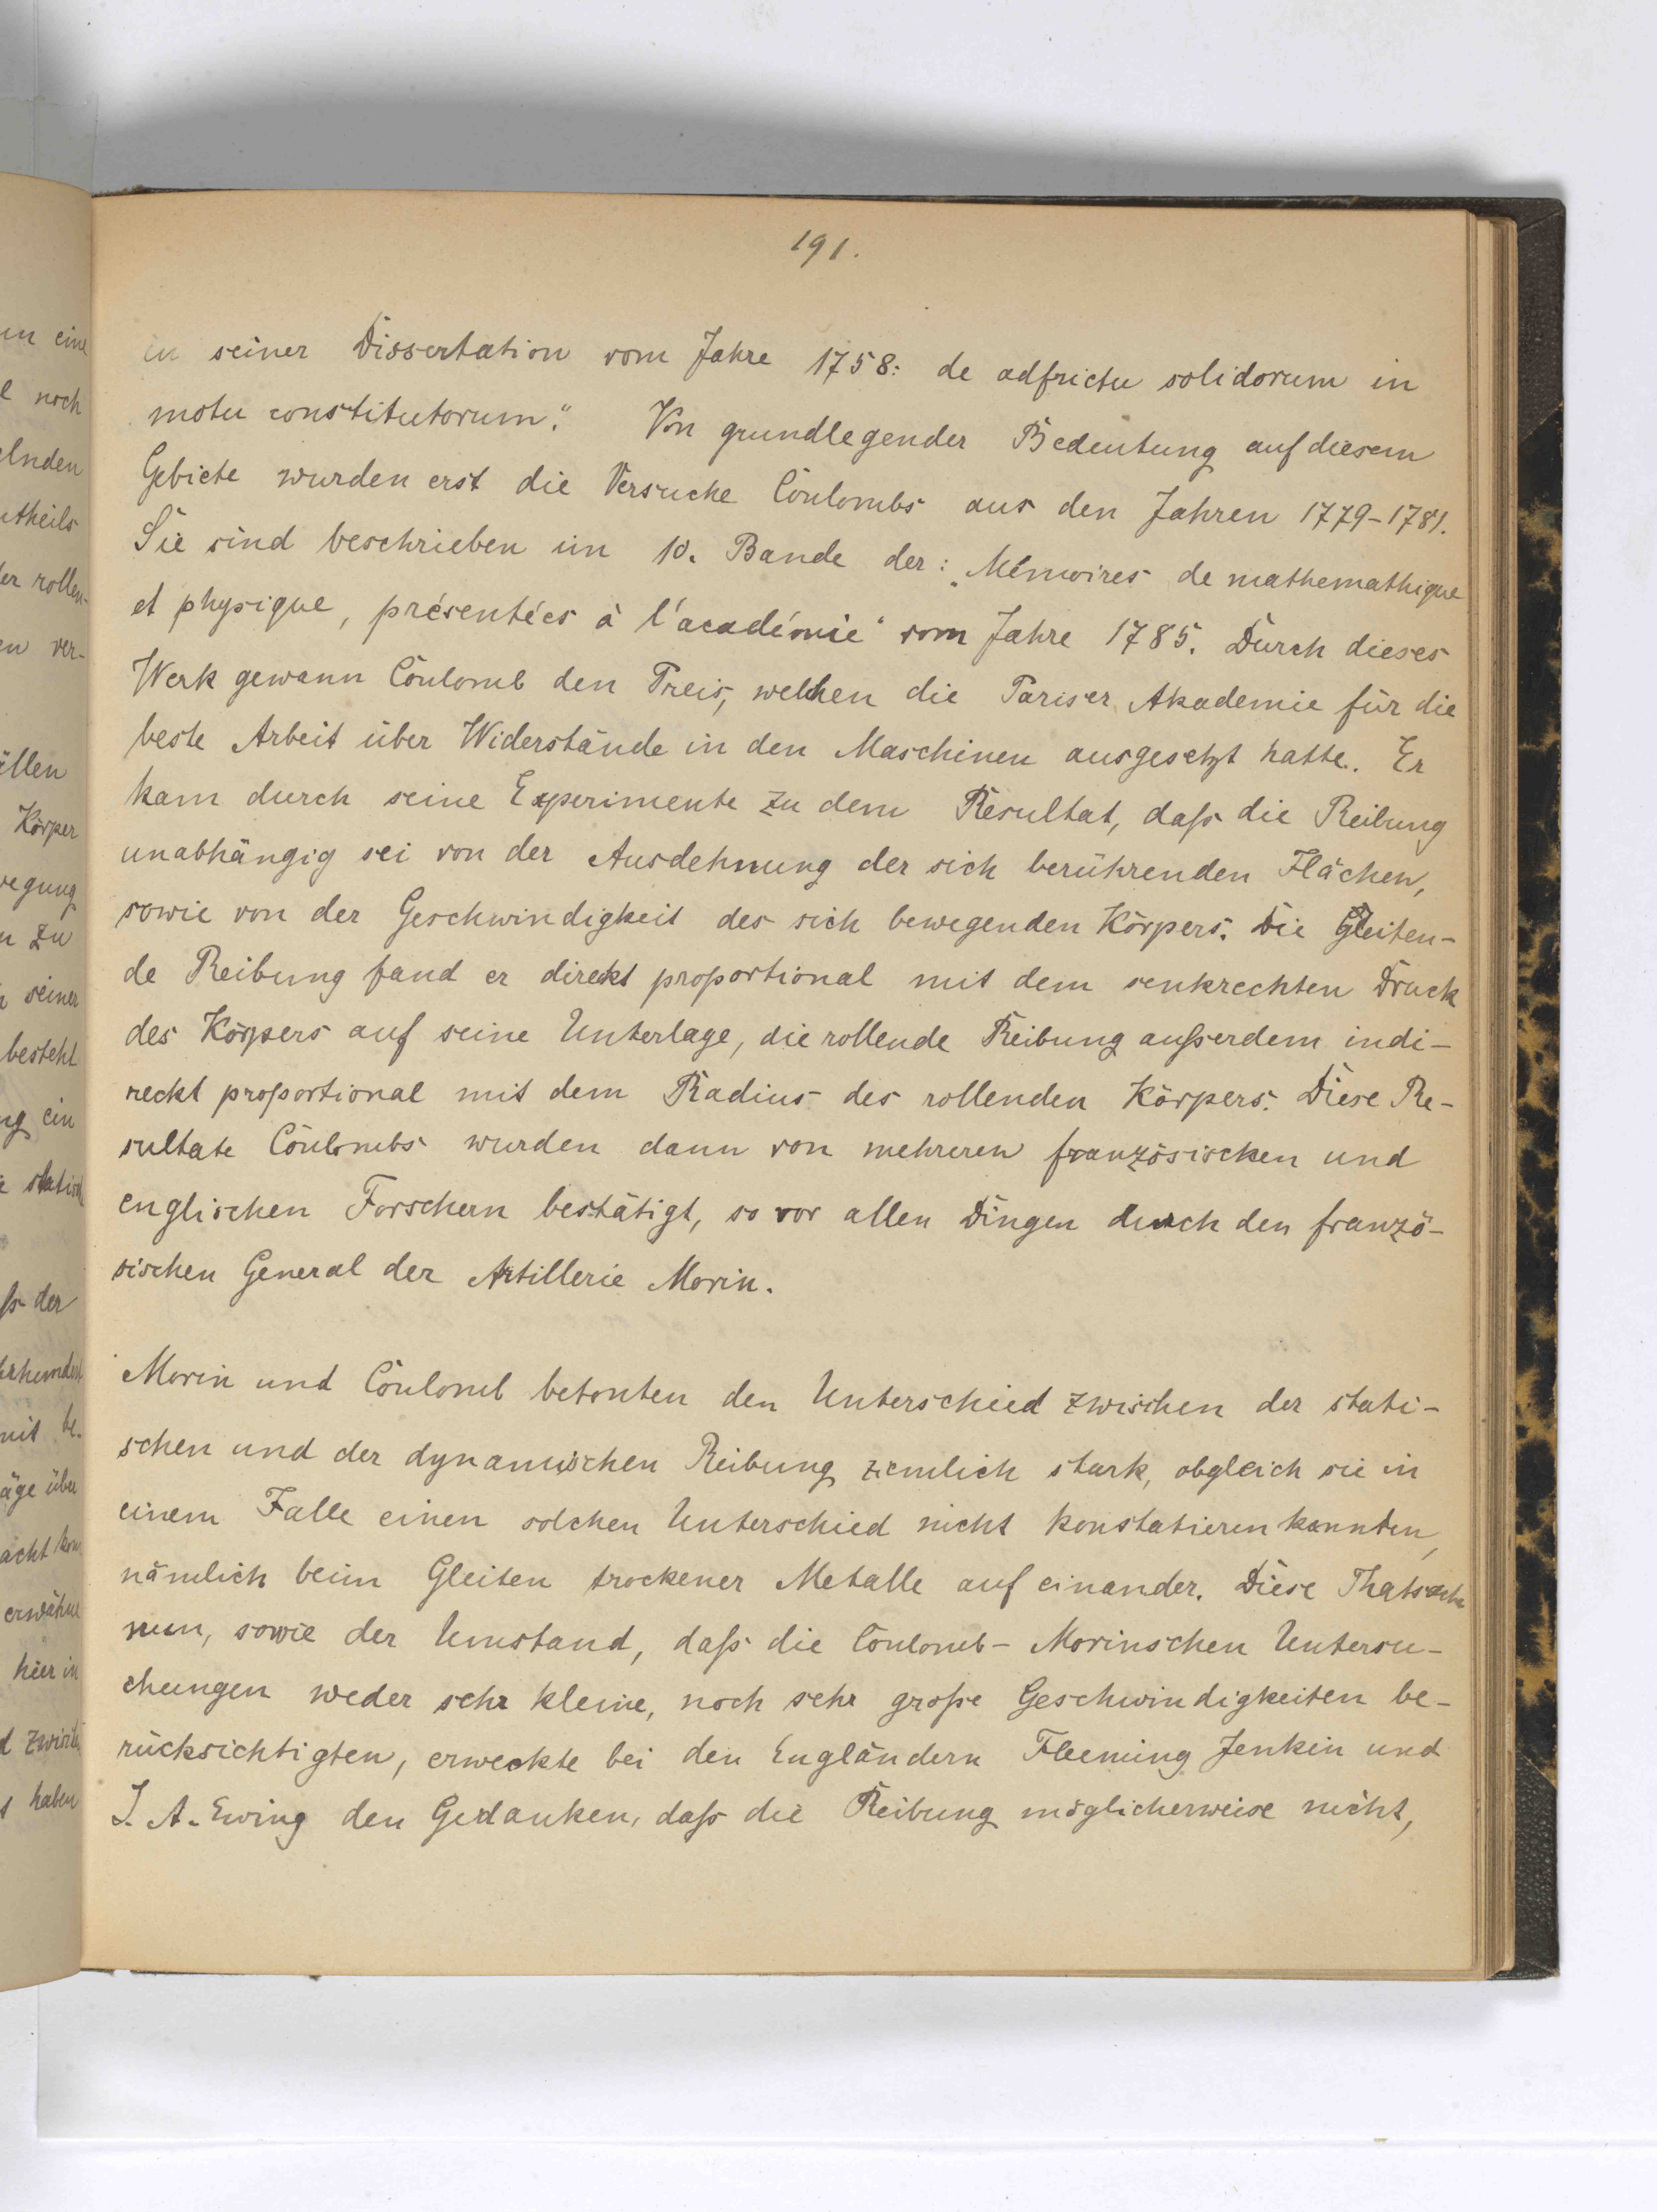 191.
in seiner Dissertation vom Jahre 1758: de adfrictu solidorum in
motu constitutorum." Von grundlegender Bedeutung auf diesem
Gebiete wurden erst die Versuche Coulombs aus den Jahren 1779-1781.
Sie sind beschrieben im 10. Bande der: „Mémoires de mathemathique
et physique, présentées à l'académie" vom Jahre 1785. Durch dieses
Werk gewann Coulomb den Preis, welchen die Pariser Akademie für die
beste Arbeit über Widerstände in den Maschinen ausgesetzt hatte. Er
kam durch seine Experimente zu dem Resultat, daß die Reibung
unabhängig sei von der Ausdehnung der sich berührenden Flächen,
sowie von der Geschwindigkeit des sich bewegenden Körpers. Die Gleiten-
de Reibung fand er direkt proportional mit dem senkrechten Druck
des Körpers auf seine Unterlage, die rollende Reibung außerdem indi-
reckt proportional mit dem Radius des rollenden Körpers. Diese Re-
sultate Coulombs wurden dann von mehreren französischen und
englischen Forschern bestätigt, so vor allen Dingen durch den franzö-
sischen General der Artillerie Morin.
Morin und Coulomb betonten den Unterschied zwischen der stati-
schen und der dynamischen Reibung ziemlich stark, obgleich sie in
einem Falle einen solchen Unterschied nicht konstatieren konnten,
nämlich beim Gleiten trockener Metalle auf einander. Diese Thatsache
nun, sowie der Umstand, daß die Coulomb-Morinschen Untersu-
chungen weder sehr kleine, noch sehr große Geschwindigkeiten be-
rücksichtigten, erweckte bei den Engländern Fleeming Jenkin und
J. A. Ewing den Gedanken, daß die Reibung möglicherweise nicht,